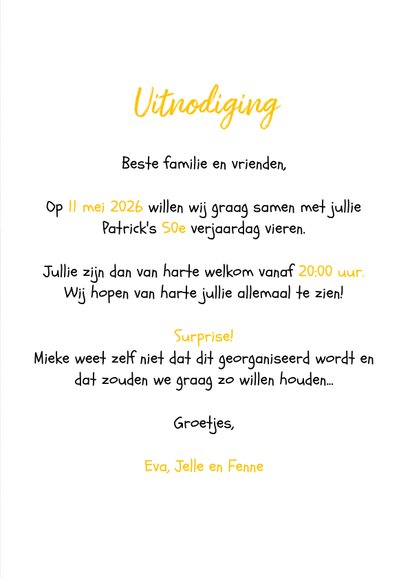 Uitnodiging
Beste familie en vrienden,
Op 11 mei 2026 willen wij graag samen met jullie
Patrick's 50e verjaardag vieren.
Jullie zijn dan van harte welkom vanaf 20:00 uur.
Wij hopen van harte jullie allemaal te zien!
Surprise!
Mieke weet zelf niet dat dit georganiseerd wordt en
dat zouden we graag zo willen houden...
Groetjes,
Eva, Jelle en Fenne